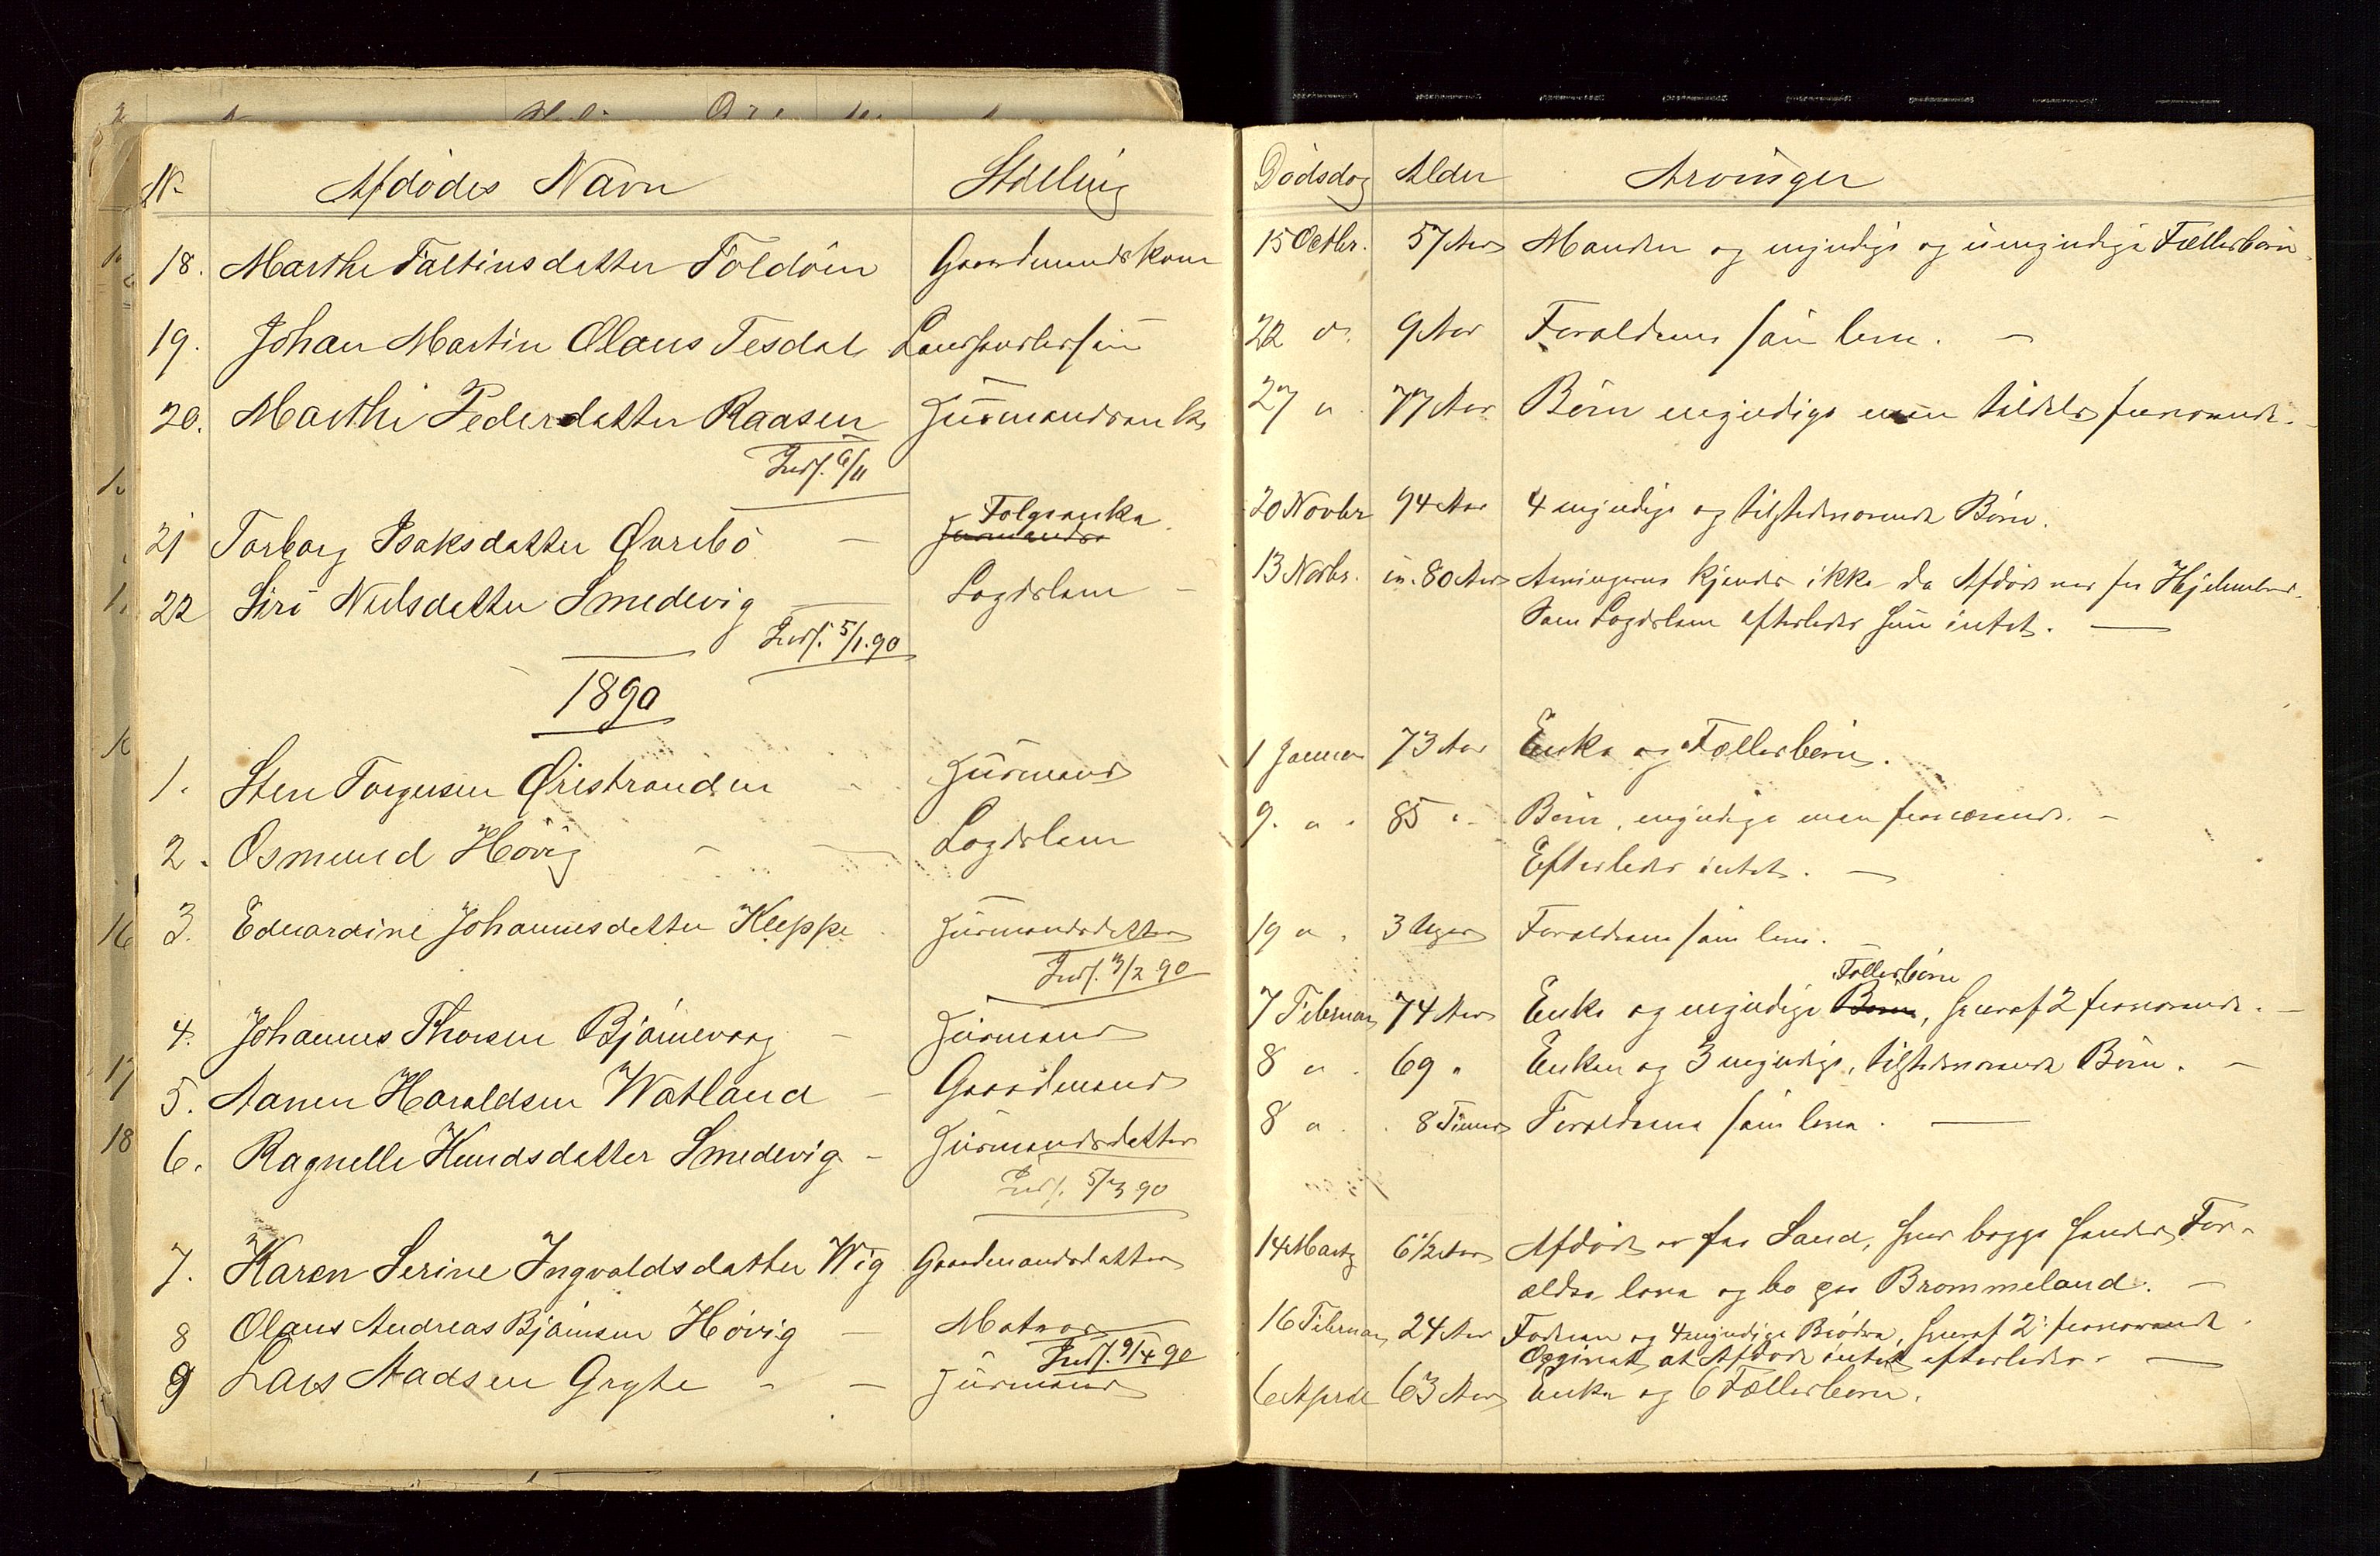 N.
Afdødes Navn
Stilling
18. Marthe Faltinsdatter Foldøen Gaardmandskone
19. Johan Martin Olaus Tesdal Landhandlersøn
20. Marthe Pedersdatter Raasen Huusmandsenke
Inds. 6/11
Folgeenke
21 Torborg Isaksdatter Øvrebø — Huusmands
22 Siri Nielsdatter Smedevig — Lægdslem —
Inds. 5/1.90
1890
1. Sten Torgersen Øiestranden - Huusmand
2. Osmund Høvig - — Lægdslem
3. Edvardine Johannesdatter Kleppe Huusmandsdatter
Inds. 3/2 90
4. Johannes Thorsen Bjørnevaag - Huusmand
5. Aanen Haraldsen Watland - Gaardmand
6. Ragnelle Knudsdatter Smedevig - Huusmandsdatter
Inds. 5/3 90
7. Karen Serine Ingvaldsdatter Wig Gaardmandsdatter
8 Olaus Andreas Bjørnsen Høvig — Matros
Inds. 9/4 90
9 Lars Aadsen Gryte - — Huusmand
Dødsdag Alder Arvinger
15 Octbr. 57 Aar Manden og myndige og umyndige Fællesbørn.
22 d. 9 Aar Forældrene som leve. —
27 " 77 Aar Børn myndige men tildels fraværende. -
20 Novbr 94 Aar 4 myndige og tilstedeværende Børn.
13 Novbr. 80 Aar Arvingerne kjendes ikke da Afdøde var fra Hjelmeland.
Som Lægdslem efterlader hun intet. —
1 Januar 73 Aar Enke og Fællesbørn.
9. " " 85 " Børn, myndige men fraværende. -
Efterlader intet. —
19 " . 3 Uger Forældrene som leve. -
Fællesbørn
7 Februar 74 Aar Enke og myndige Børn, hvoraf 2 fraværende. -
8 " . 69 " Enken og 3 myndige, tilstedeværende Børn. -
8 " . 8 Timer Forældrene som leve. —
14 Marts 6 1/2 Aar Afdøde er fra Sand, hvor begge hendes For-
ældre leve og bo paa Brommeland. -
16 Februar 24 Aar Fodran og 4 myndige Brødre, hvoraf 2 fraværende.
Opgivet at Afdøde intet efterlader. —
6 April 63 Aar Enke og 6 Fællesbørn.